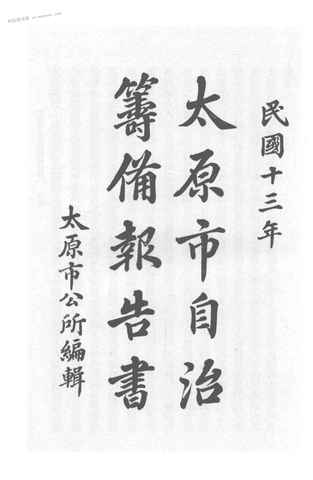 民國十三年
太原市自治
籌備報告書
太原市公所編輯